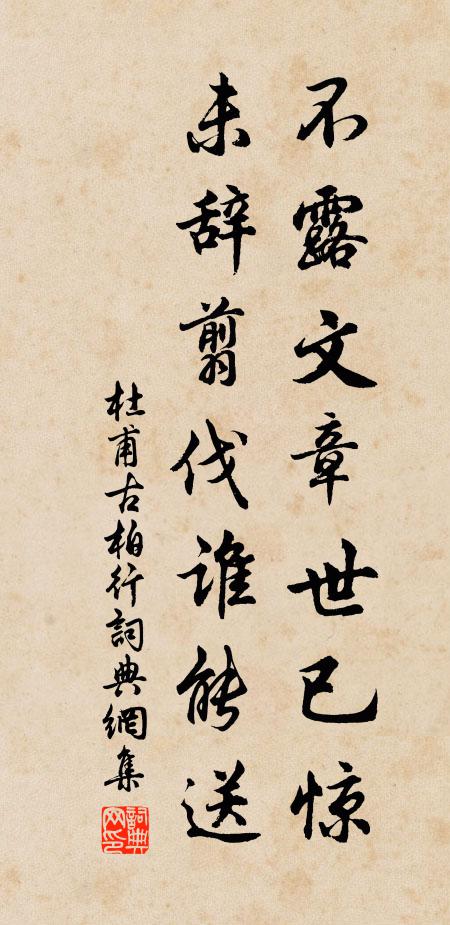 不露文章世已惊
未辞剪伐谁能送
杜甫古柏行詞典網集
詞典网印